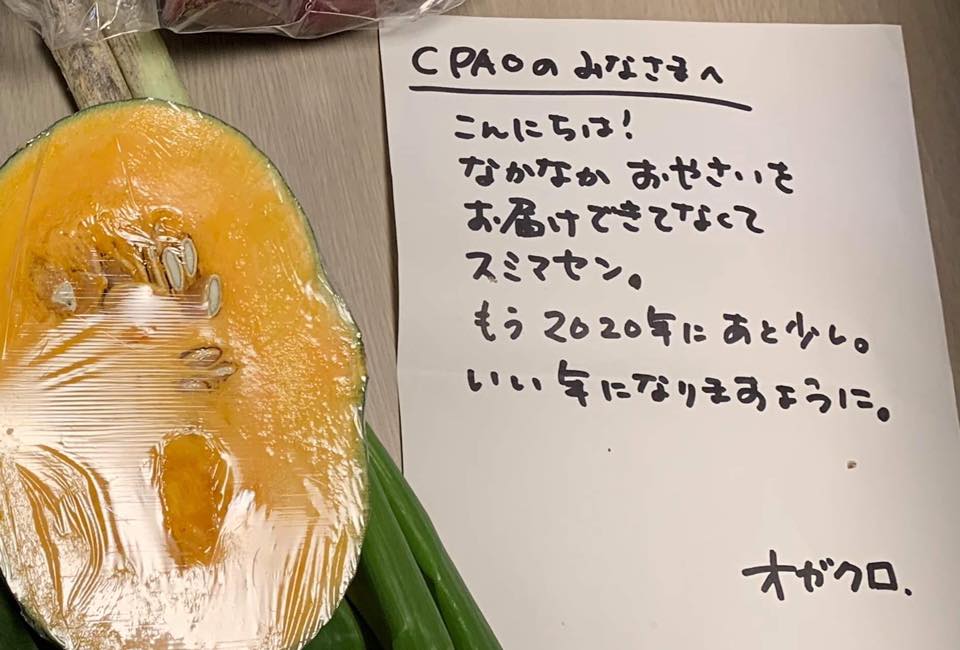 CPAOのみなさまへ
こんにちは！
なかなかおやさいを
お届けできてなくて
スミマセン。
もう2020年にあと少し。
いい年になりますように。
オガクロ.